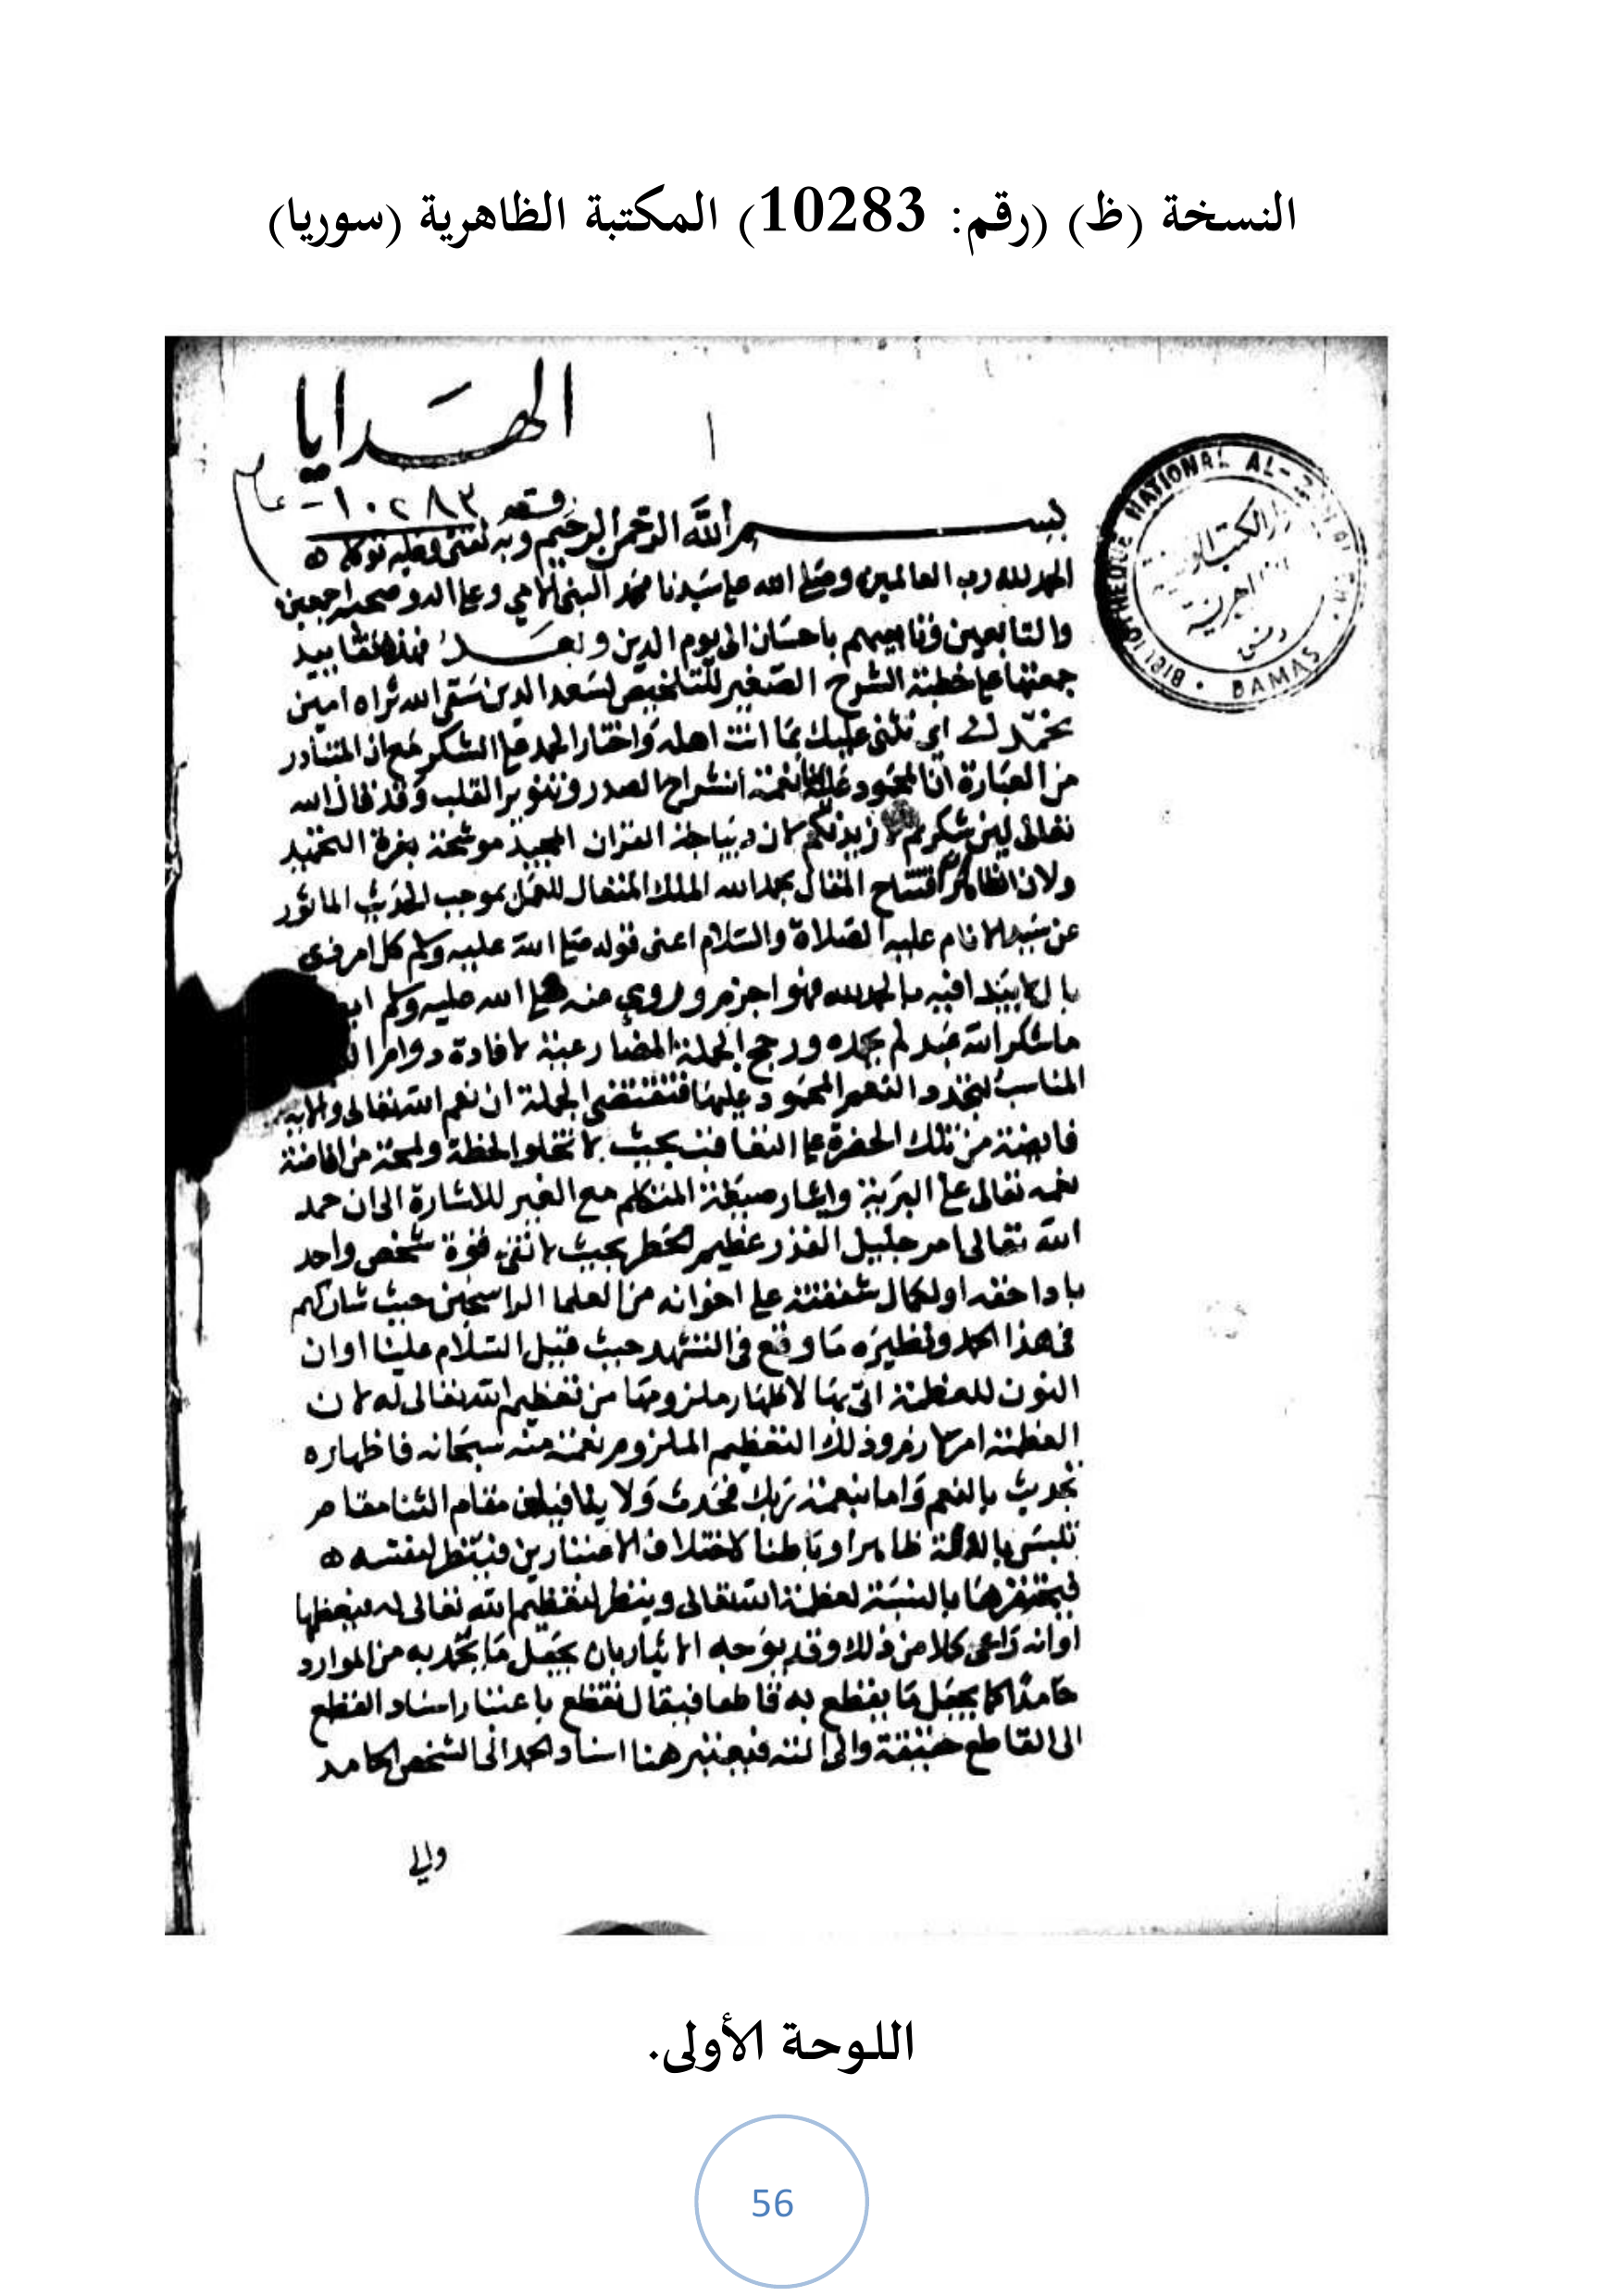 النسخة (ظ) (رقم: 10283) المكتبة الظاهرية (سوريا)
الهدايا
١
١٠٢٨٣
BIBLIOTHEQUE NATIONAL AL-
DAMAS
بسم الله الرحمن الرحيم وبه ثقتي وعليه توكلي
الحمد لله رب العالمين وصلى الله على سيدنا محمد النبي الامي وعلى اله وصحبه اجمعين
والتابعين وتابعيهم باحسان الى يوم الدين وبعد فهذه تقاييد
جمعتها على خطبة الشرح الصغير للتلخيص لسعد الدين سقى الله ثراه امين
نحمدك اي نثني عليك بما انت اهله واختار الحمد على الشكر مع ان المتبادر
من العبارة ان المحمود عليه نعمة انشراح الصدر وتنوير القلب وقد قال الله
تعالى لين شكرتم لازيدنكم لان ديباجة القران المجيد موشحة بغرة التحميد
ولان افتتاح المقال بحمد الله الملك المتعال للعمل بموجب الحديث الماثور
عن سيد الانام عليه الصلاة والسلام اعني قوله صلى الله عليه وسلم كل امر ذي
بال لا يبتدا فيه بالحمد لله فهو اجزم وروي عنه صلى الله عليه وسلم
ما شكر الله عبد لم يحمده ورجح الجملة المضارعية لافادة دوام
المناسب لتجدد النعم المحمود عليها فتقتضي الجملة ان نعم الله تعالى
فايضة من تلك الحضرة على التعاقب بحيث لا تخلو لحظة ولمحة من افاضة
نعمه تعالى على البرية وايثار صيغة المتكلم مع الغير للاشارة الى ان حمد
الله تعالى امر جليل القدر عظيم الخطر بحيث لا تفي قوة شخص واحد
باداء حقه او لكمال شفقته على اخوانه من العلما الراسخين حيث شاركهم
في هذا الحمد ونظيره ما وقع في التشهد حيث قيل السلام علينا او ان
النون للعظمة اتى بها لاظهار ملزومها من تعظيم الله تعالى له لان
العظمة امر لازم وذلك التعظيم الملزوم نعمة منه سبحانه فاظهاره
تحديث بالنعم واما بنعمة ربك فحدث ولا ينافي مقام الثنا مقام
تلبس بالذلة ظاهرا وباطنا لاختلاف الاعتبارين فينظر لنفسه
فيحتقرها بالنسبة لعظمة الله تعالى وينظر لتعظيم الله تعالى له فيعظمها
او انه راعى كلا من ذلك وقد يوجه الايثار بان يجعل ما يحمد به من الموارد
حامدا كما يجعل ما يقطع به قاطعا فيقال نقطع باعتبار اسناد القطع
الى القاطع حقيقة والى الته فيعتبر هنا اسناد الحمد الى الشخص الحامد
والى
اللوحة الأولى.
56